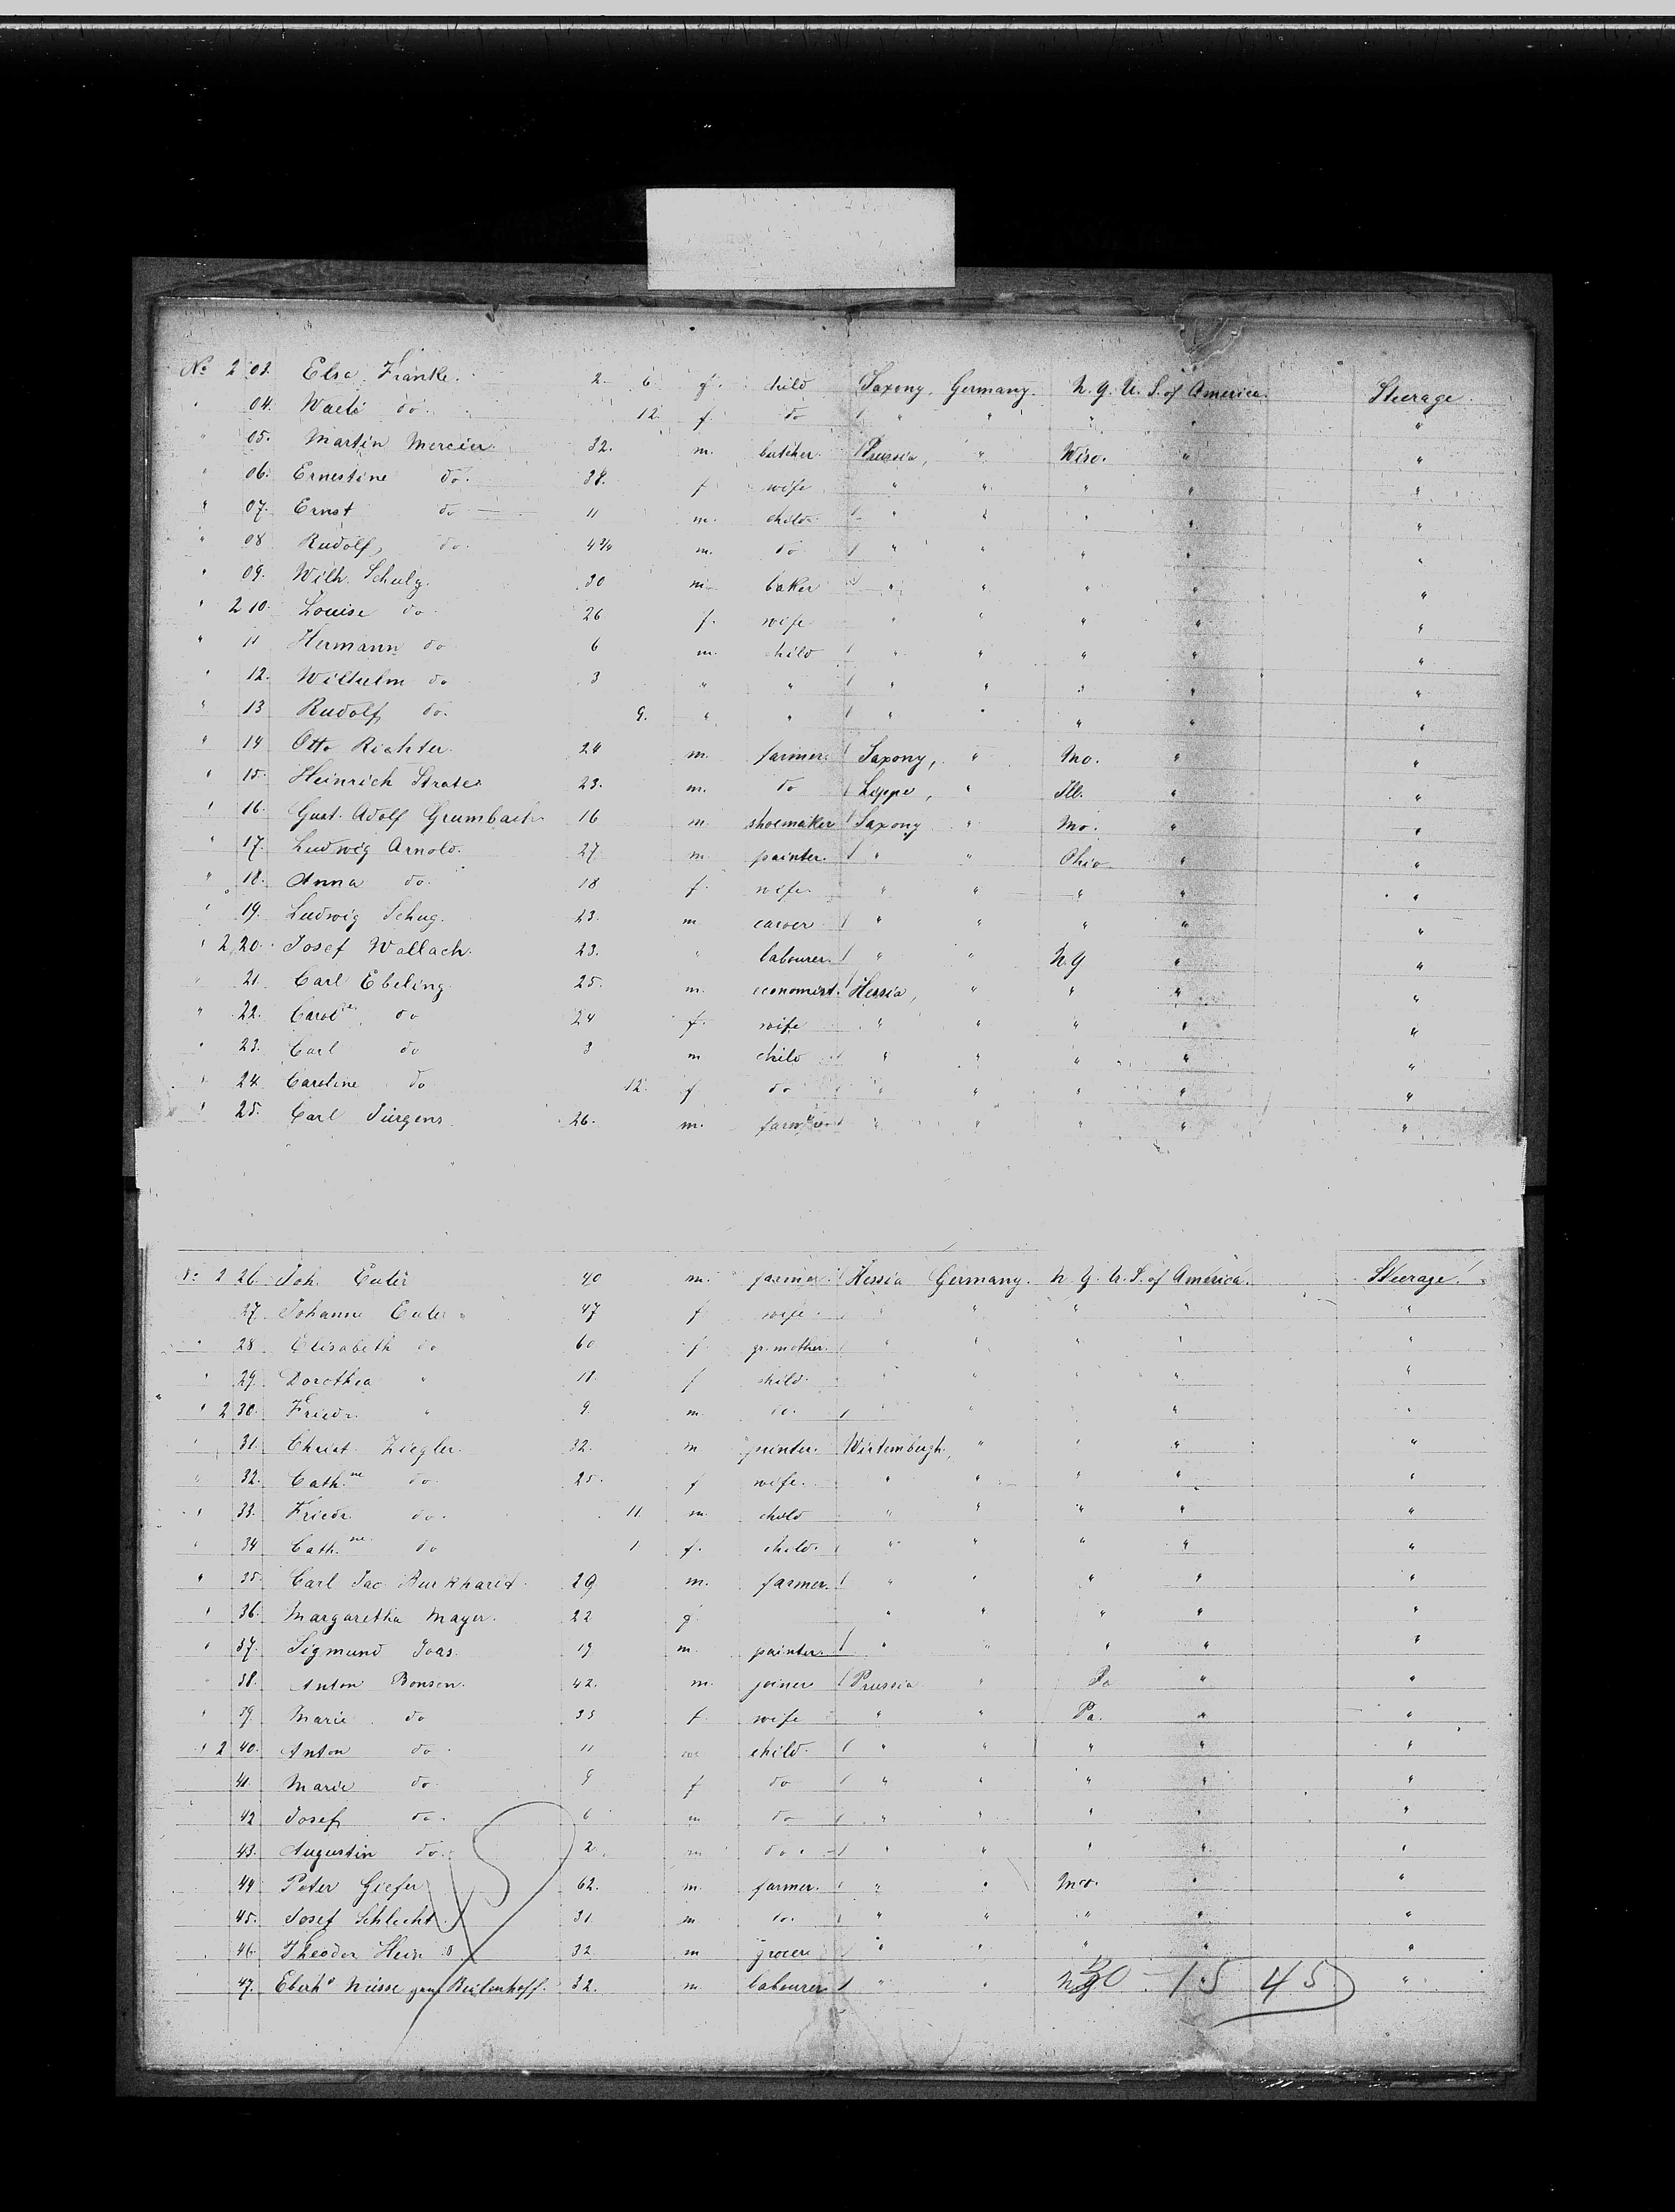 No 2 03. Else Franke. 2 6 f. child Saxony, Germany. N.Y. U.S. of America. Steerage.
" 04. do. 12 f. do " " " " "
" 05. Martin Mercier 32. m. butcher. Prussia, " Wisc. " "
" 06. Ernestine do. 38. f wife " " " " "
" 07. Ernst do 11 m. child. " " " " "
" 08 Rudolf, do. 4 3/4 m. do " " " " "
" 09. Wilh. Schulz. 30 m. baker " " " " "
" 2 10. Louise do. 26 f. wife " " " " "
" 11 Hermann do 6 m. child " " " " "
" 12. Wilhelm do 3 " " " " " " "
" 13 Rudolf do. 9. " " " " " " "
" 14 Otto Richter. 24 m. farmer Saxony, " Mo. " "
" 15. Heinrich Strate 23. m. do Lippe, " Ill. " "
" 16. Gust. Adolf Grumbach 16 m shoemaker Saxony " Mo. " "
" 17. Ludwig Arnold. 27 m painter. " " Ohio " "
" 18. Anna do. 18 f. wife. " " " " "
" 19. Ludwig Schug. 23. m carver " " " " "
" 2 20. Josef Wallach. 23. " labourer. " " N.Y " "
" 21. Carl Ebeling. 25. m. economist. Hessia, " " " "
" 22. Carol.e do 24 f. wife " " " " "
" 23. Carl do 3 m child " " " " "
" 24. Caroline do 12. f do " " " " "
" 25. Carl Jürgens 26. m. farmer " " " " "
No 2 26. Joh. Euler 40 m. farmer. Hessia Germany. N.Y. U.S. of America. Steerage.
27. Johanne Euler 47 f wife. " " " " "
" 28. Elisabeth do 60 f gr. mother. " " " " "
" 29. Dorothea " 11. f child. " " " " "
" 2 30. Friedr. " 9. m. do. " " " " "
" 31. Christ. Ziegler. 32. m painter. Wirtembergh, " " " "
" 32. Cath.ne do. 25. f wife. " " " " "
" 33. Friedr. do. 11. m. child " " " " "
" 34 Cath.ne do 1 f. child. " " " " "
" 35. Carl Jac Burkhardt. 29 m. farmer. " " " " "
" 36. Margaretha Mayer. 22 f. " " " " "
" 37. Sigmund Joas. 19 m. painter. " " " " "
" 38. Anton Bonsen. 42. m. joiner Prussia " Pa " "
" 39. Marie do 35 f. wife " " Pa. " "
" 2 40. Anton do. 11 m child. " " " " "
41. Marie do. 9 f do " " " " "
42 Josef do. 6 m do " " " " "
43. Augustin do. 2. m do. " " " " "
44 Peter Giefer 62. m. farmer. " " Mo. " "
45. Josef Schlecht. 31. m do. " " " " "
46. Theodor Hein 32 m grocer " " " " "
47. Eberh.d Niesse gen. 32. m. labourer " " 30 - 15 45 "